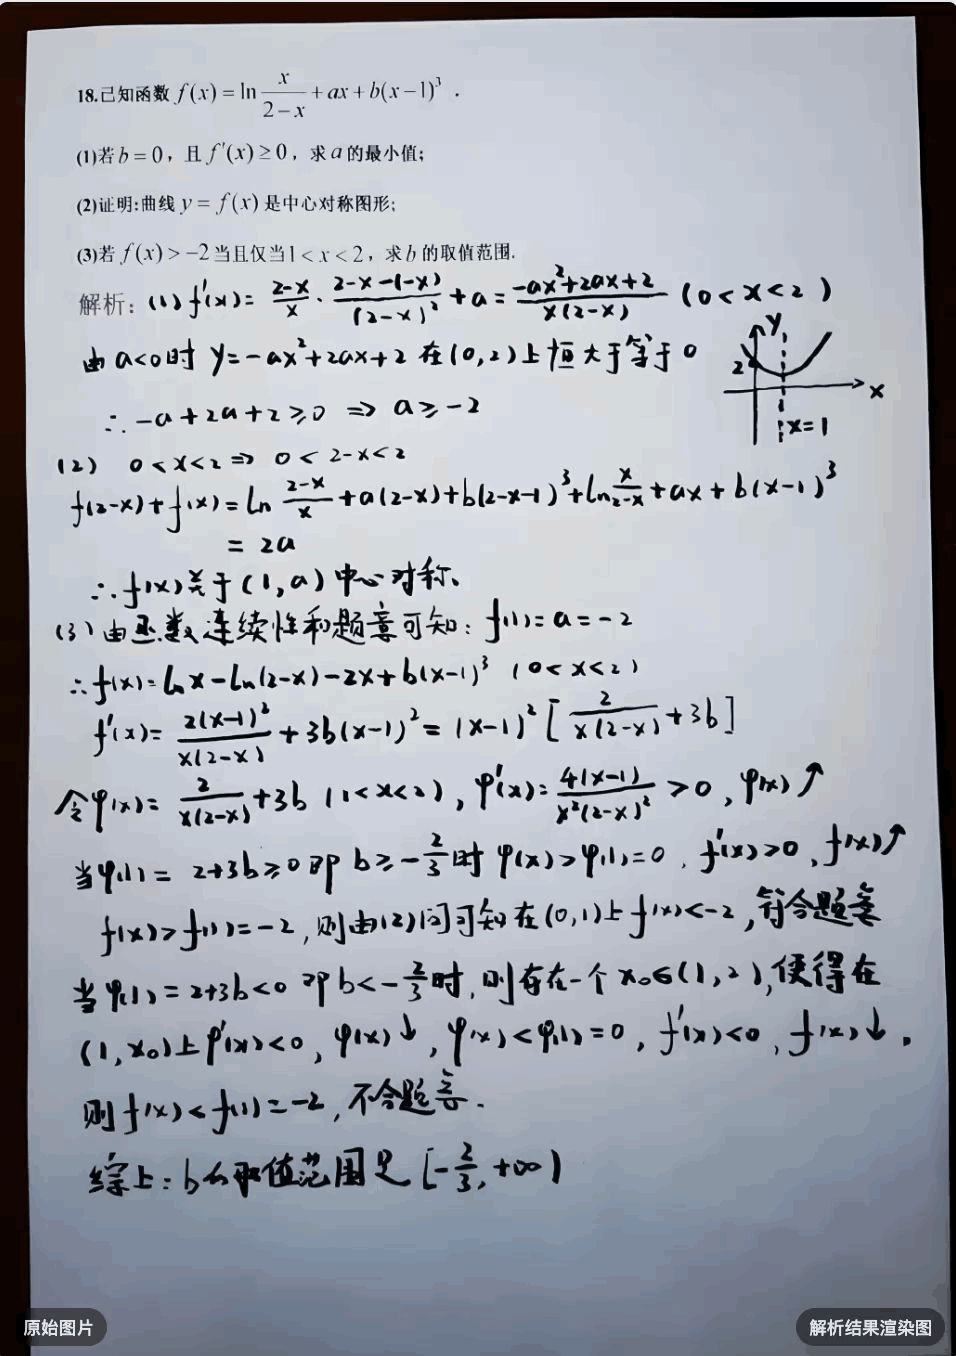 18.已知函数 f(x) = ln x/(2-x) + ax + b(x-1)³ .
(1)若 b = 0，且 f'(x) ≥ 0，求 a 的最小值;
(2)证明:曲线 y = f(x) 是中心对称图形;
(3)若 f(x) > -2 当且仅当 1 < x < 2，求 b 的取值范围.
解析: (1) f'(x) = (2-x)/x · (2-x-(-x))/(2-x)² + a = (-ax²+2ax+2)/(x(2-x)) (0<x<2)
由 a<0时 y=-ax²+2ax+2 在(0,2)上恒大于等于0
∴ -a+2a+2≥0 ⇒ a≥-2
y
2
x
x=1
(2) 0<x<2 ⇒ 0<2-x<2
f(2-x)+f(x) = ln (2-x)/x + a(2-x)+b(2-x-1)³+ln x/(2-x) + ax + b(x-1)³
= 2a
∴ f(x)关于(1,a)中心对称.
(3)由函数连续性和题意可知: f(1)=a=-2
∴ f(x)=lnx-ln(2-x)-2x+b(x-1)³ (0<x<2)
f'(x)= 2(x-1)²/(x(2-x)) + 3b(x-1)² = (x-1)² [2/(x(2-x)) + 3b]
令φ(x)= 2/(x(2-x)) + 3b (1<x<2), φ'(x)= 4(x-1)/(x²(2-x)²) > 0, φ(x)↑
当φ(1)= 2+3b≥0 即 b≥-2/3时 φ(x)>φ(1)=0, f'(x)>0, f(x)↑
f(x)>f(1)=-2, 则由(2)问可知在(0,1)上 f(x)<-2, 符合题意
当φ(1)=2+3b<0 即b<-2/3时, 则存在一个 x₀∈(1,2), 使得在
(1,x₀)上φ'(x)<0, φ(x)↓, φ(x)<φ(1)=0, f'(x)<0, f(x)↓.
则f(x)<f(1)=-2, 不合题意.
综上: b的取值范围是 [-2/3, +∞)
原始图片
解析结果渲染图